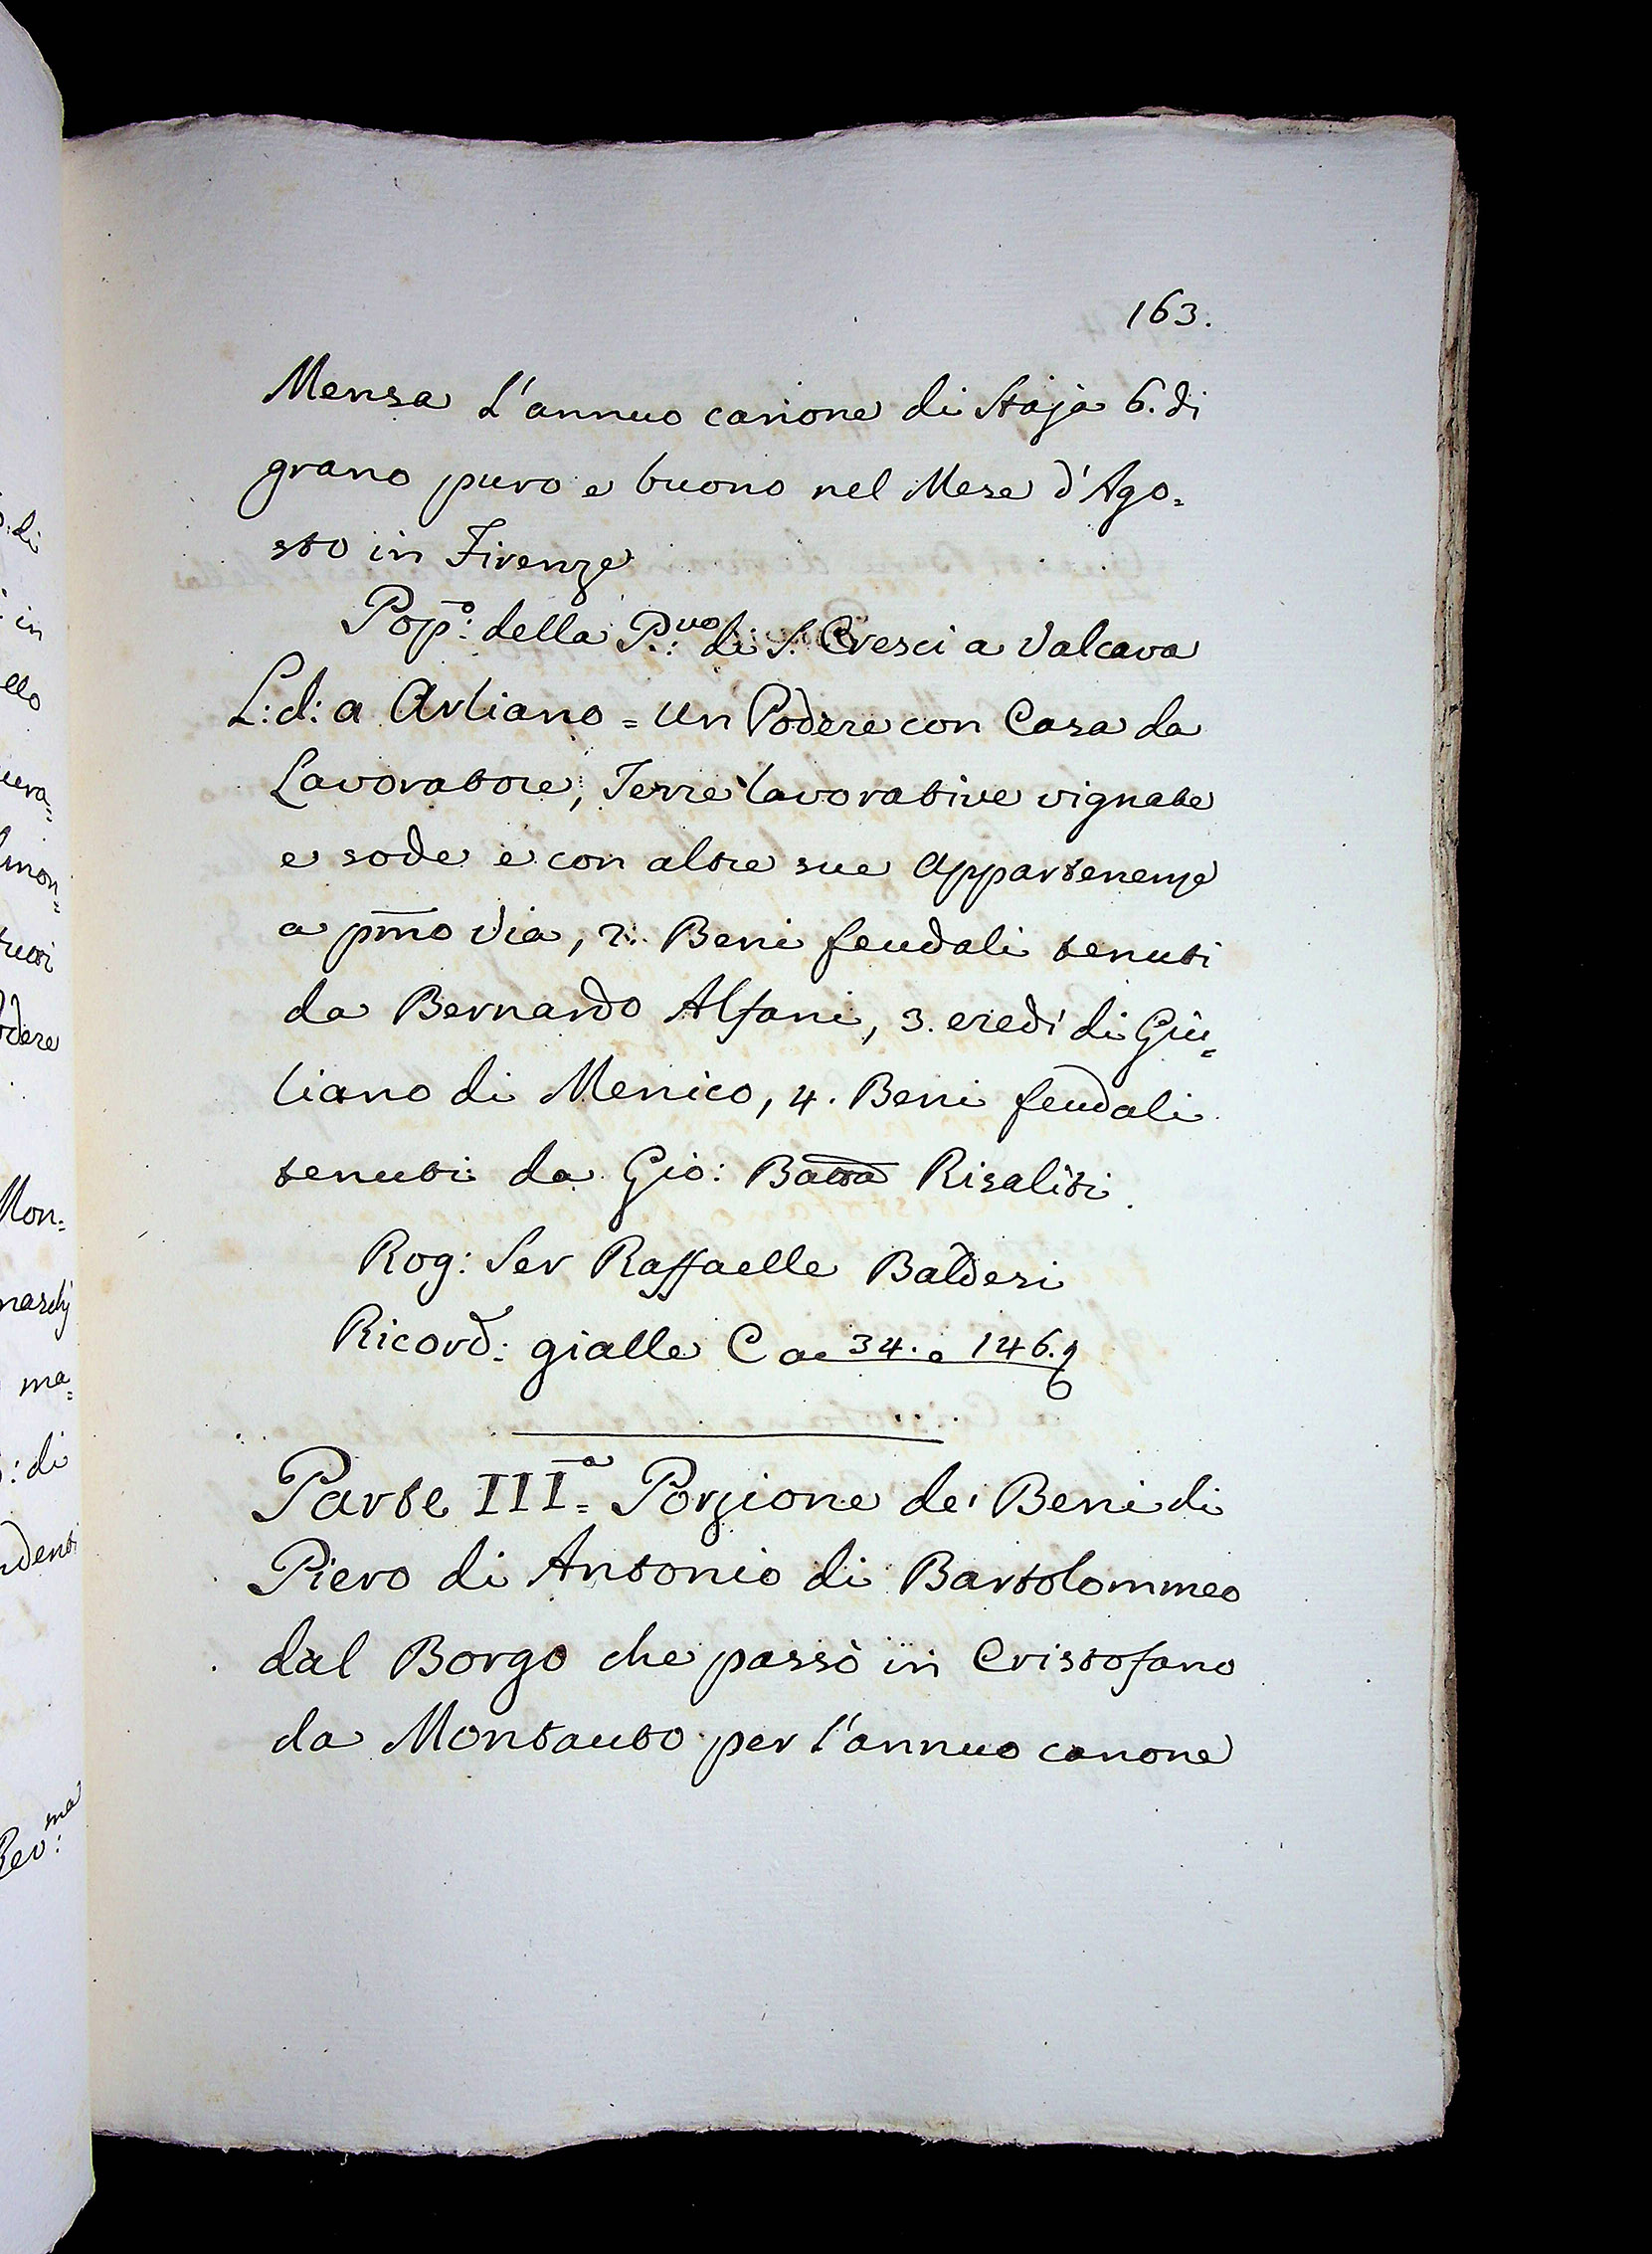 163.
Mensa l'annuo canone di Staja 6. di
grano puro e buono nel Mese d'Ago=
sto in Firenze
Pop:o della P:ve di S. Cresci a Valcava
L: d: a Arliano = Un Podere con Casa da
Lavoratore, Terre lavorative vignate
e sode e con altre sue appartenenze
a pmo via, 2. Beni feudali tenuti
da Bernardo Alfani, 3. eredi di Giu=
liano di Menico, 4. Beni feudali
tenuti da Gio: Batta Risaliti.
Rog: Ser Raffaelle Baldesi
Ricord: gialle C a 34. a 146.
Parte III.a Porzione dei Beni di
Piero di Antonio di Bartolommeo
dal Borgo che passò in Cristofano
da Montauto per l'annuo canone
:di
in
ello
Mon=
ma=
: di
Rev:ma